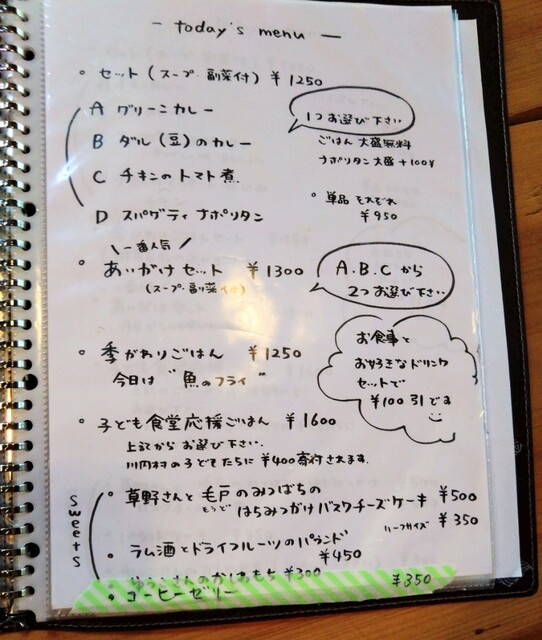 - today's menu -
。セット(スープ・副菜付) ¥1250
A グリーンカレー
B ダル(豆)のカレー
C チキンのトマト煮.
D スパゲティ ナポリタン
1つお選び下さい
ごはん 大盛無料
ナポリタン大盛 +100¥
。単品 それぞれ
¥950
\一番人気/
。あいがけセット ¥1300
(スープ・副菜付)
A.B.Cから
2つお選び下さい
。季がわりごはん ¥1250
今日は "魚のフライ"
お食事と
お好きなドリンク
セットで
¥100引です
。子ども食堂応援ごはん ¥1600
上記からお選び下さい.
川内村の子どもたちに ¥400寄付されます.
sweets
。草野さんと毛戸のみつばちの
もうど
はちみつがけバスクチーズケーキ ¥500
ハーフサイズ ¥350
。ラム酒とドライフルーツのパウンド
¥450
のかしわもち ¥300
。コーヒーゼリー ¥350